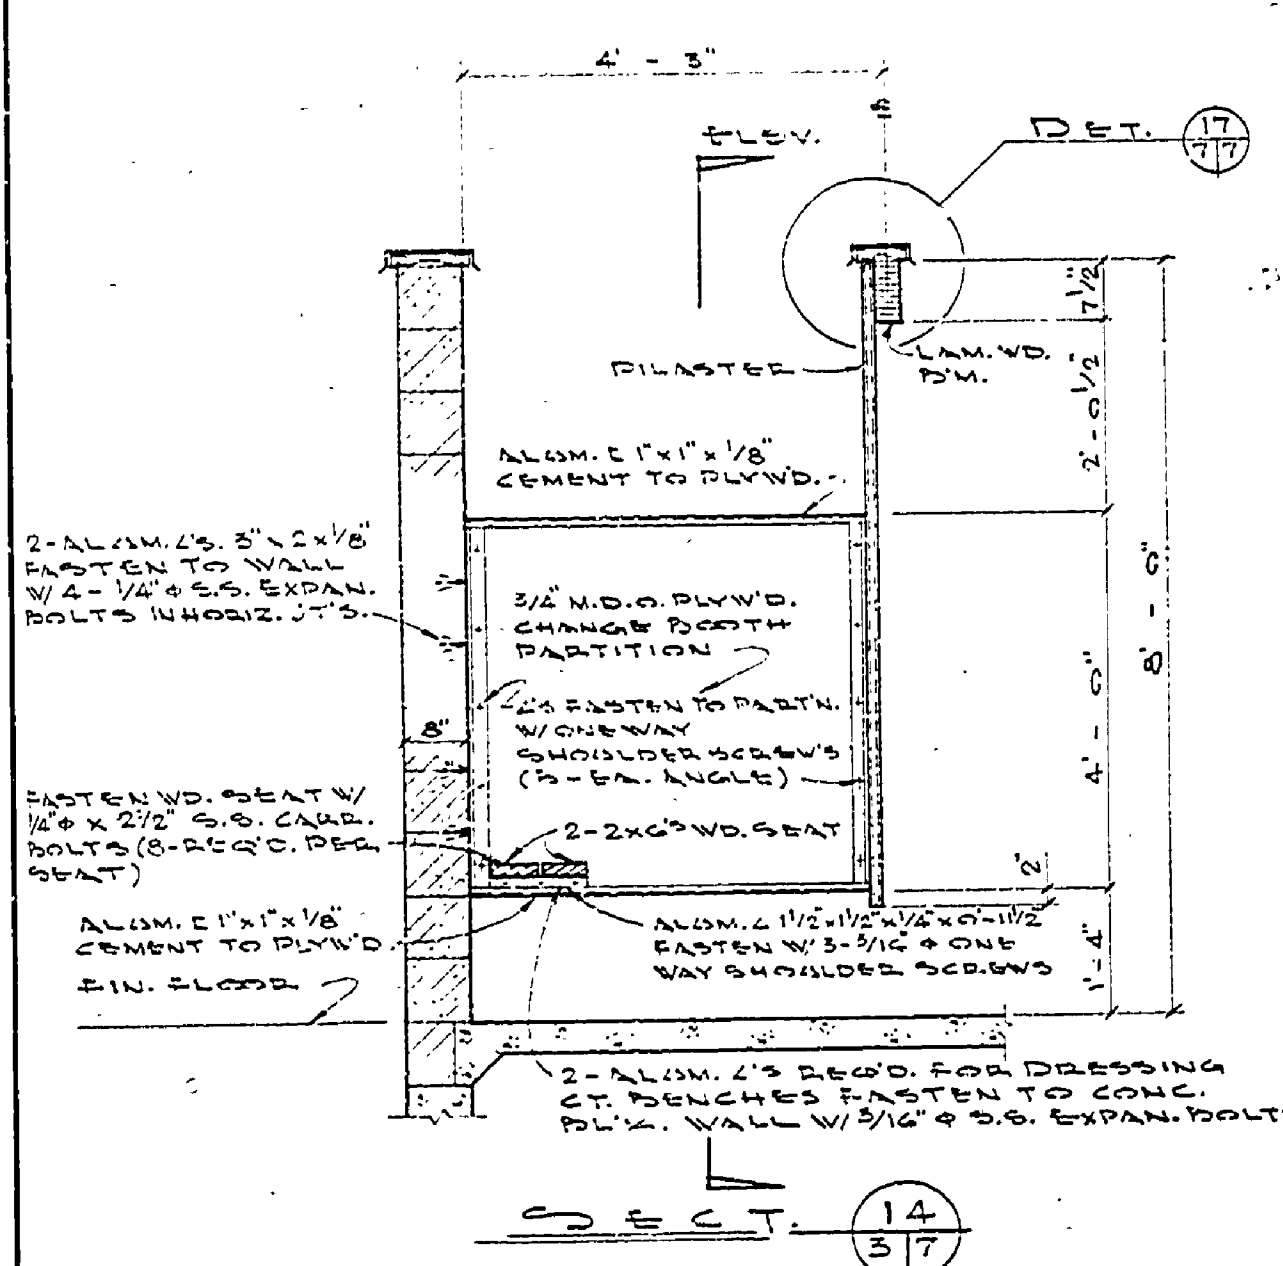 4' - 3"
ELEV.
DET. 17
7 7
7 1/2"
PILASTER
LAM. WD.
B'M.
2' - 0 1/2"
ALUM. [ 1" x 1" x 1/8"
CEMENT TO PLYW'D.
2-ALUM. L'S. 3" x 2 x 1/8"
FASTEN TO WALL
W/ 4 - 1/4" φ S.S. EXPAN.
BOLTS IN HORIZ. JT'S.
3/4" M.D.O. PLYW'D.
CHANGE BOOTH
PARTITION
8' - 0"
L'S FASTEN TO PART'N.
W/ ONE WAY
SHOULDER SCREW'S
(5 - EA. ANGLE)
8"
4' - 0"
FASTEN WD. SEAT W/
1/4" φ x 2 1/2" S.S. CARR.
BOLTS (8-REQ'D. PER
SEAT)
2-2x6'S WD. SEAT
2"
ALUM. [ 1" x 1" x 1/8"
CEMENT TO PLYW'D
ALUM. L 1 1/2" x 1 1/2" x 1/4" x 0'-11 1/2"
FASTEN W/ 3-3/16" φ ONE
WAY SHOULDER SCREWS
1' - 4"
FIN. FLOOR
2 - ALUM. L'S REQ'D. FOR DRESSING
CT. BENCHES FASTEN TO CONC.
BL'K. WALL W/ 3/16" φ S.S. EXPAN. BOLT
SECT. 14
3 7